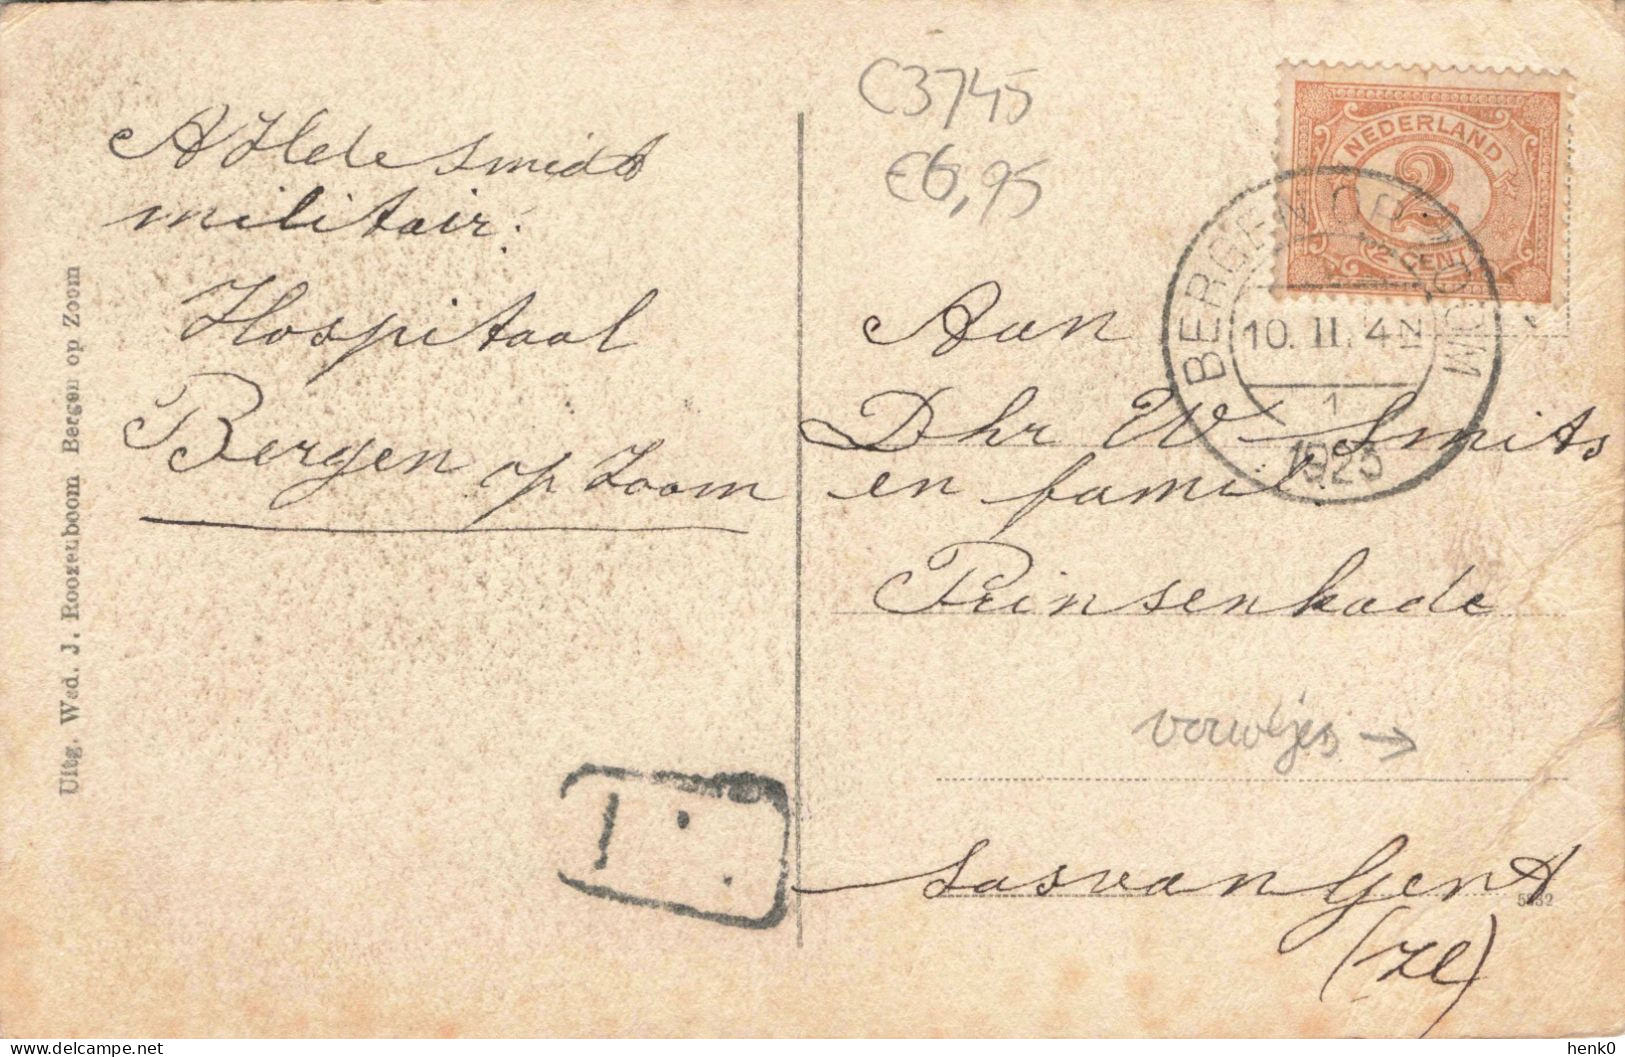 A Ilde Smidt
militair.
Hospitaal
Bergen op Zoom
Uitg. Wed. J. Roozenboom Bergen op Zoom
C3745
€6,95
NEDERLAND
2
CENT
BERGEN OP ZOOM
10. II. 4N
1
1923
Aan
Dhr W Smits
en famil.
Prinsenkade
vouwtjes →
Sas van Gent
(Zl)
delcampe.net
henk0